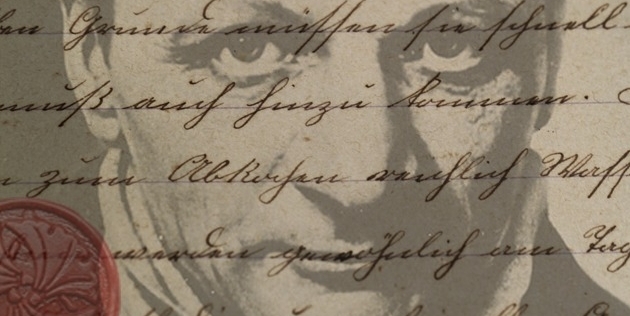 Grunde müssen sie schnell
muß auch hinzu kommen.
zum Abkochen reichlich Wass
werden gewöhnlich am Tag